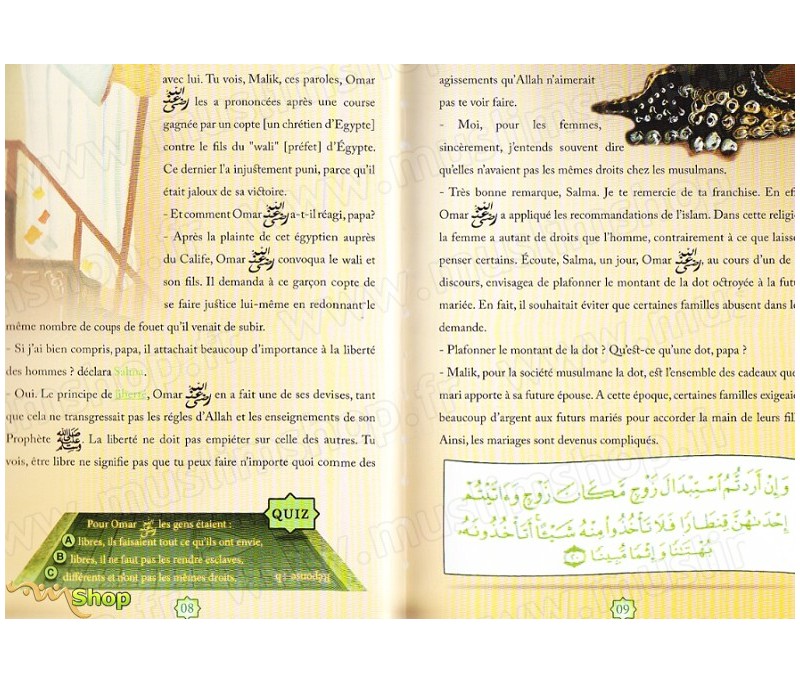 avec lui. Tu vois, Malik, ces paroles, Omar
رضي الله عنه les a prononcées après une course
gagnée par un copte [un chrétien d'Egypte]
contre le fils du "wali" [préfet] d'Égypte.
Ce dernier l'a injustement puni, parce qu'il
était jaloux de sa victoire.
- Et comment Omar رضي الله عنه a-t-il réagi, papa?
- Après la plainte de cet égyptien auprès
du Calife, Omar رضي الله عنه convoqua le wali et
son fils. Il demanda à ce garçon copte de
se faire justice lui-même en redonnant le
même nombre de coups de fouet qu'il venait de subir.
- Si j'ai bien compris, papa, il attachait beaucoup d'importance à la liberté
des hommes ? déclara Salma.
- Oui. Le principe de liberté, Omar رضي الله عنه en a fait une de ses devises, tant
que cela ne transgressait pas les régles d'Allah et les enseignements de son
Prophète صلى الله عليه وسلم. La liberté ne doit pas empiéter sur celle des autres. Tu
vois, être libre ne signifie pas que tu peux faire n'importe quoi comme des
QUIZ
Pour Omar رضي الله عنه les gens étaient :
A libres, ils faisaient tout ce qu'ils ont envie,
B libres, il ne faut pas les rendre esclaves,
C différents et n'ont pas les mêmes droits.
Réponse : b
Shop
08
agissements qu'Allah n'aimerait
pas te voir faire.
- Moi, pour les femmes,
sincèrement, j'entends souvent dire
qu'elles n'avaient pas les mêmes droits chez les musulmans.
- Très bonne remarque, Salma. Je te remercie de ta franchise. En ef
Omar رضي الله عنه a appliqué les recommandations de l'islam. Dans cette religi
la femme a autant de droits que l'homme, contrairement à ce que laisse
penser certains. Écoute, Salma, un jour, Omar رضي الله عنه, au cours d'un de
discours, envisagea de plafonner le montant de la dot octroyée à la futu
mariée. En fait, il souhaitait éviter que certaines familles abusent dans le
demande.
- Plafonner le montant de la dot ? Qu'est-ce qu'une dot, papa ?
- Malik, pour la société musulmane la dot, est l'ensemble des cadeaux que
mari apporte à sa future épouse. A cette époque, certaines familles exigeaie
beaucoup d'argent aux futurs mariés pour accorder la main de leurs fill
Ainsi, les mariages sont devenus compliqués.
وَإِنْ أَرَدتُّمُ ٱسْتِبْدَالَ زَوْجٍ مَّكَانَ زَوْجٍ وَءَاتَيْتُمْ
إِحْدَىٰهُنَّ قِنطَارًا فَلَا تَأْخُذُوا۟ مِنْهُ شَيْـًٔا أَتَأْخُذُونَهُۥ
بُهْتَـٰنًا وَإِثْمًا مُّبِينًا ٢٠
09
www.muslimshop.fr